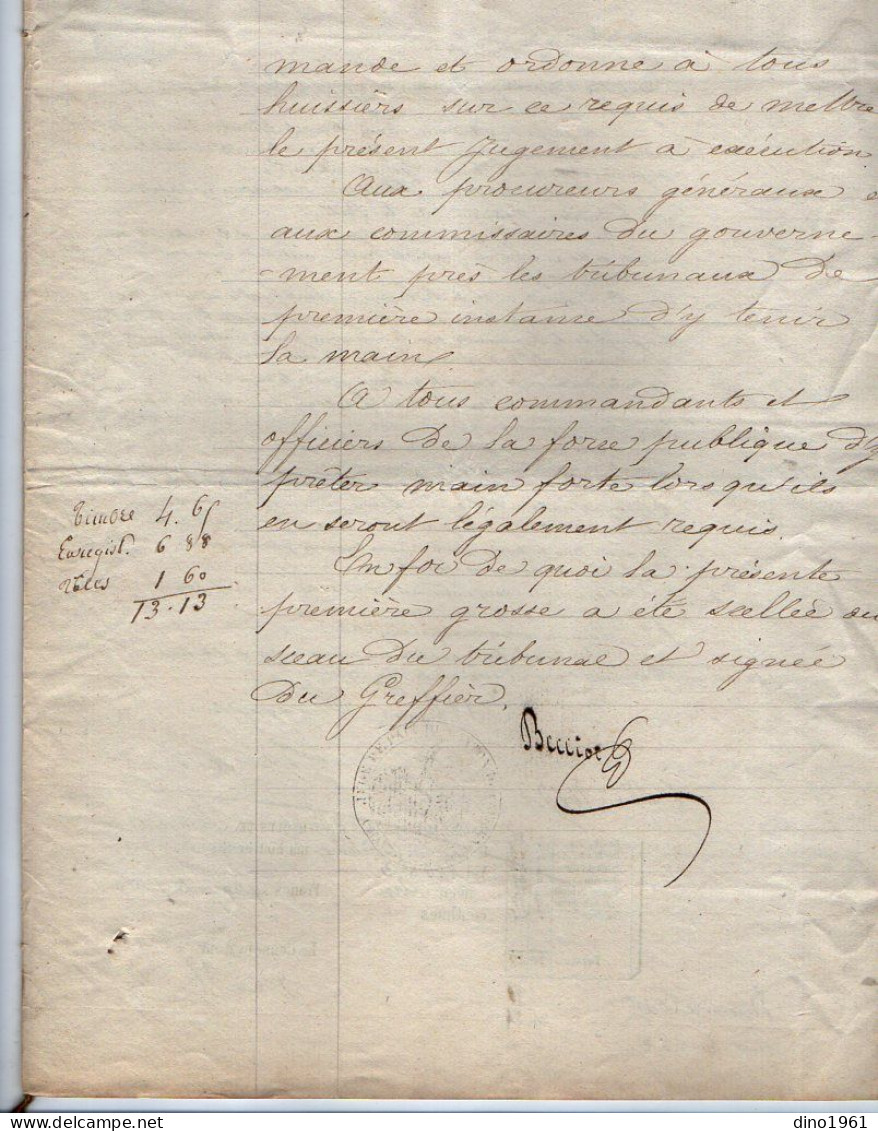 mande et ordonne à tous
huissiers sur ce requis de mettre
le présent Jugement à exécution.
Aux procureurs généraux e
aux commissaires du gouverne-
-ment près les tribunaux de
première instance d'y tenir
la main.
A tous commandants et
officiers de la force publique d'y
prêter main forte lorsqu'ils
en seront légalement requis.
En foi de quoi la présente
première grosse a été scellée au
sceau du tribunal et signée
Du Greffier.
Timbre 4. 65
Enregist. 6 88
Rôles 1 60
13.13
dino1961